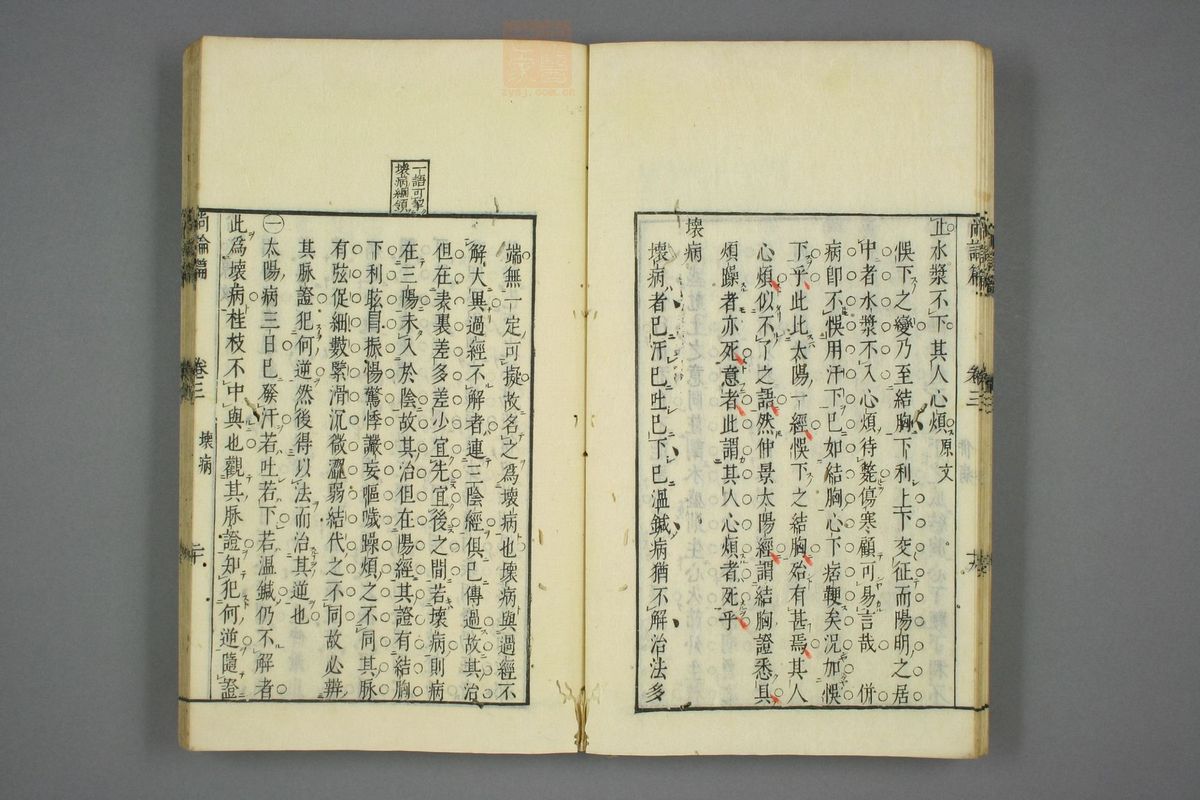 尚論篇 卷三
止水漿不下其人心煩 原文
悞下之變乃至結胸下利上下交征而陽明之居
中者水漿不入心煩待斃傷寒顧可易言哉 併
病即不悞用汗下已如結胸心下痞鞕矣況加悞
下乎此比太陽一經悞下之結胸殆有甚焉其人
心煩似不了之語然仲景太陽經謂結胸證悉具
煩躁者亦死意者此謂其人心煩者死乎
壞病
壞病者已汗已吐已下已溫鍼病猶不解治法多
端無一定可擬故名之為壞病也壞病與過經不
解大異過經不解者連三陰經俱已傳過故其治
但在表裏差多差少宜先宜後之間若壞病則病
在三陽未入於陰故其治但在陽經其證有結胸
下利眩冒振惕驚悸讝妄嘔噦躁煩之不同其脈
有弦促細數緊滑沉微澀弱結代之不同故必辨
其脈證犯何逆然後得以法而治其逆也
㊀太陽病三日已發汗若吐若下若溫鍼仍不解者
此為壞病桂枝不中與也觀其脈證知犯何逆隨證
一語可挈
壞病綱領
尚論篇 卷三 壞病 二十
zysj.com.cn